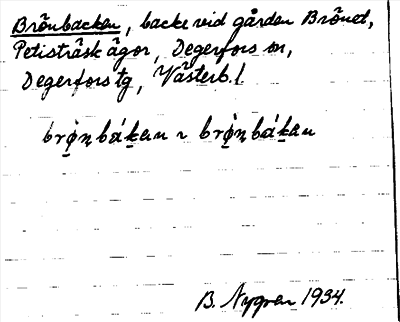 Brönbacken, backe vid gården Brönet,
Petisträsk ägor, Degerfors sn,
Degerfors tg, Västerb. l.
brø̜̀n̥bák̬an ~ brø̜̀n̥bák̬an
B. Nygren 1934.